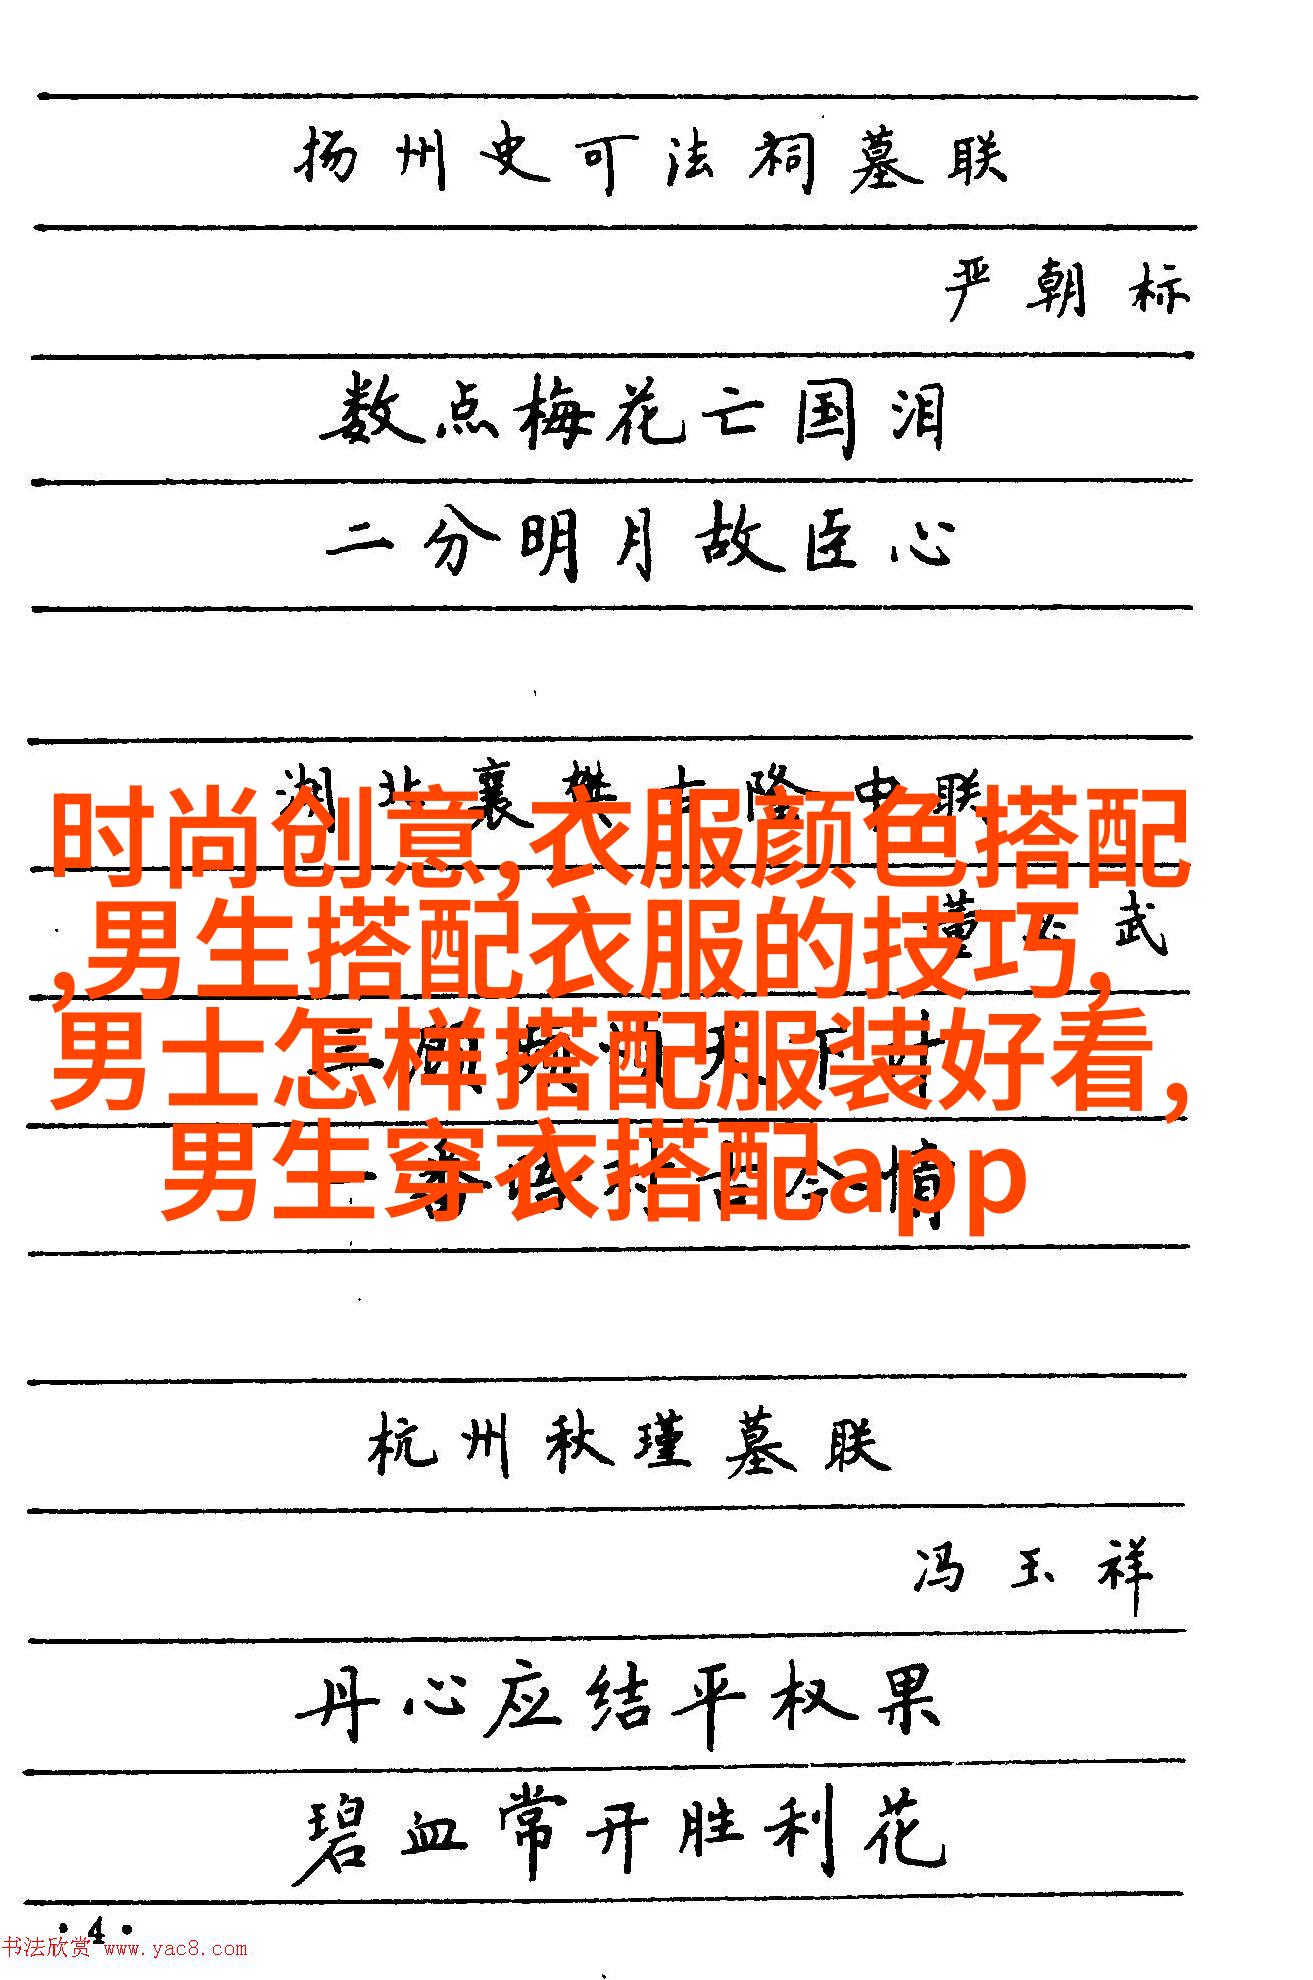 扬州史可法祠墓联
严朝标
数点梅花亡国泪
二分明月故臣心
湖北襄樊古隆中联
时尚创意,衣服颜色搭配
董必武
,男生搭配衣服的技巧,
男士怎样搭配服装好看,
男生穿衣搭配app
杭州秋瑾墓联
冯玉祥
丹心应结平权果
碧血常开胜利花
·4·
书法欣赏 www.yac8.com